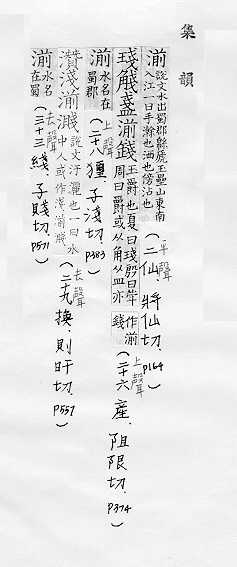 集韻
湔 說文水出蜀郡緜虒玉壘山東南入江一曰手瀚也洒也傍沾也(二仙.將仙切.P164)
平聲
琖觥盞湔錢 王爵也夏曰琖殷曰斝周曰爵或从角从皿亦作湔錢(二十六產.阻限切.P374)
上聲
湔 水名在蜀郡(二十八獮.子淺切.P383)
上聲
濺湔 說文汙灑也一曰水中人或作(二十九換.則旰切.P557)
去聲
湔 水名在蜀(三十三綫.子賤切.P571)
去聲